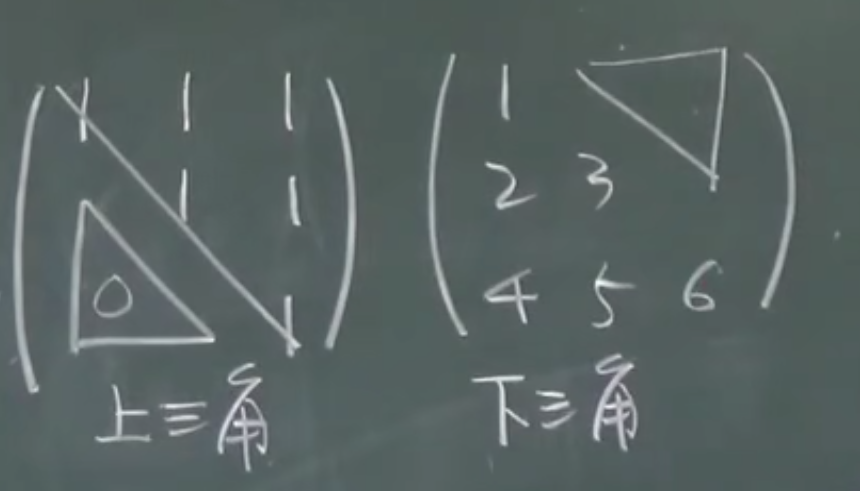 1 1 1
1 1
0 1
上三角
1
2 3
4 5 6
下三角